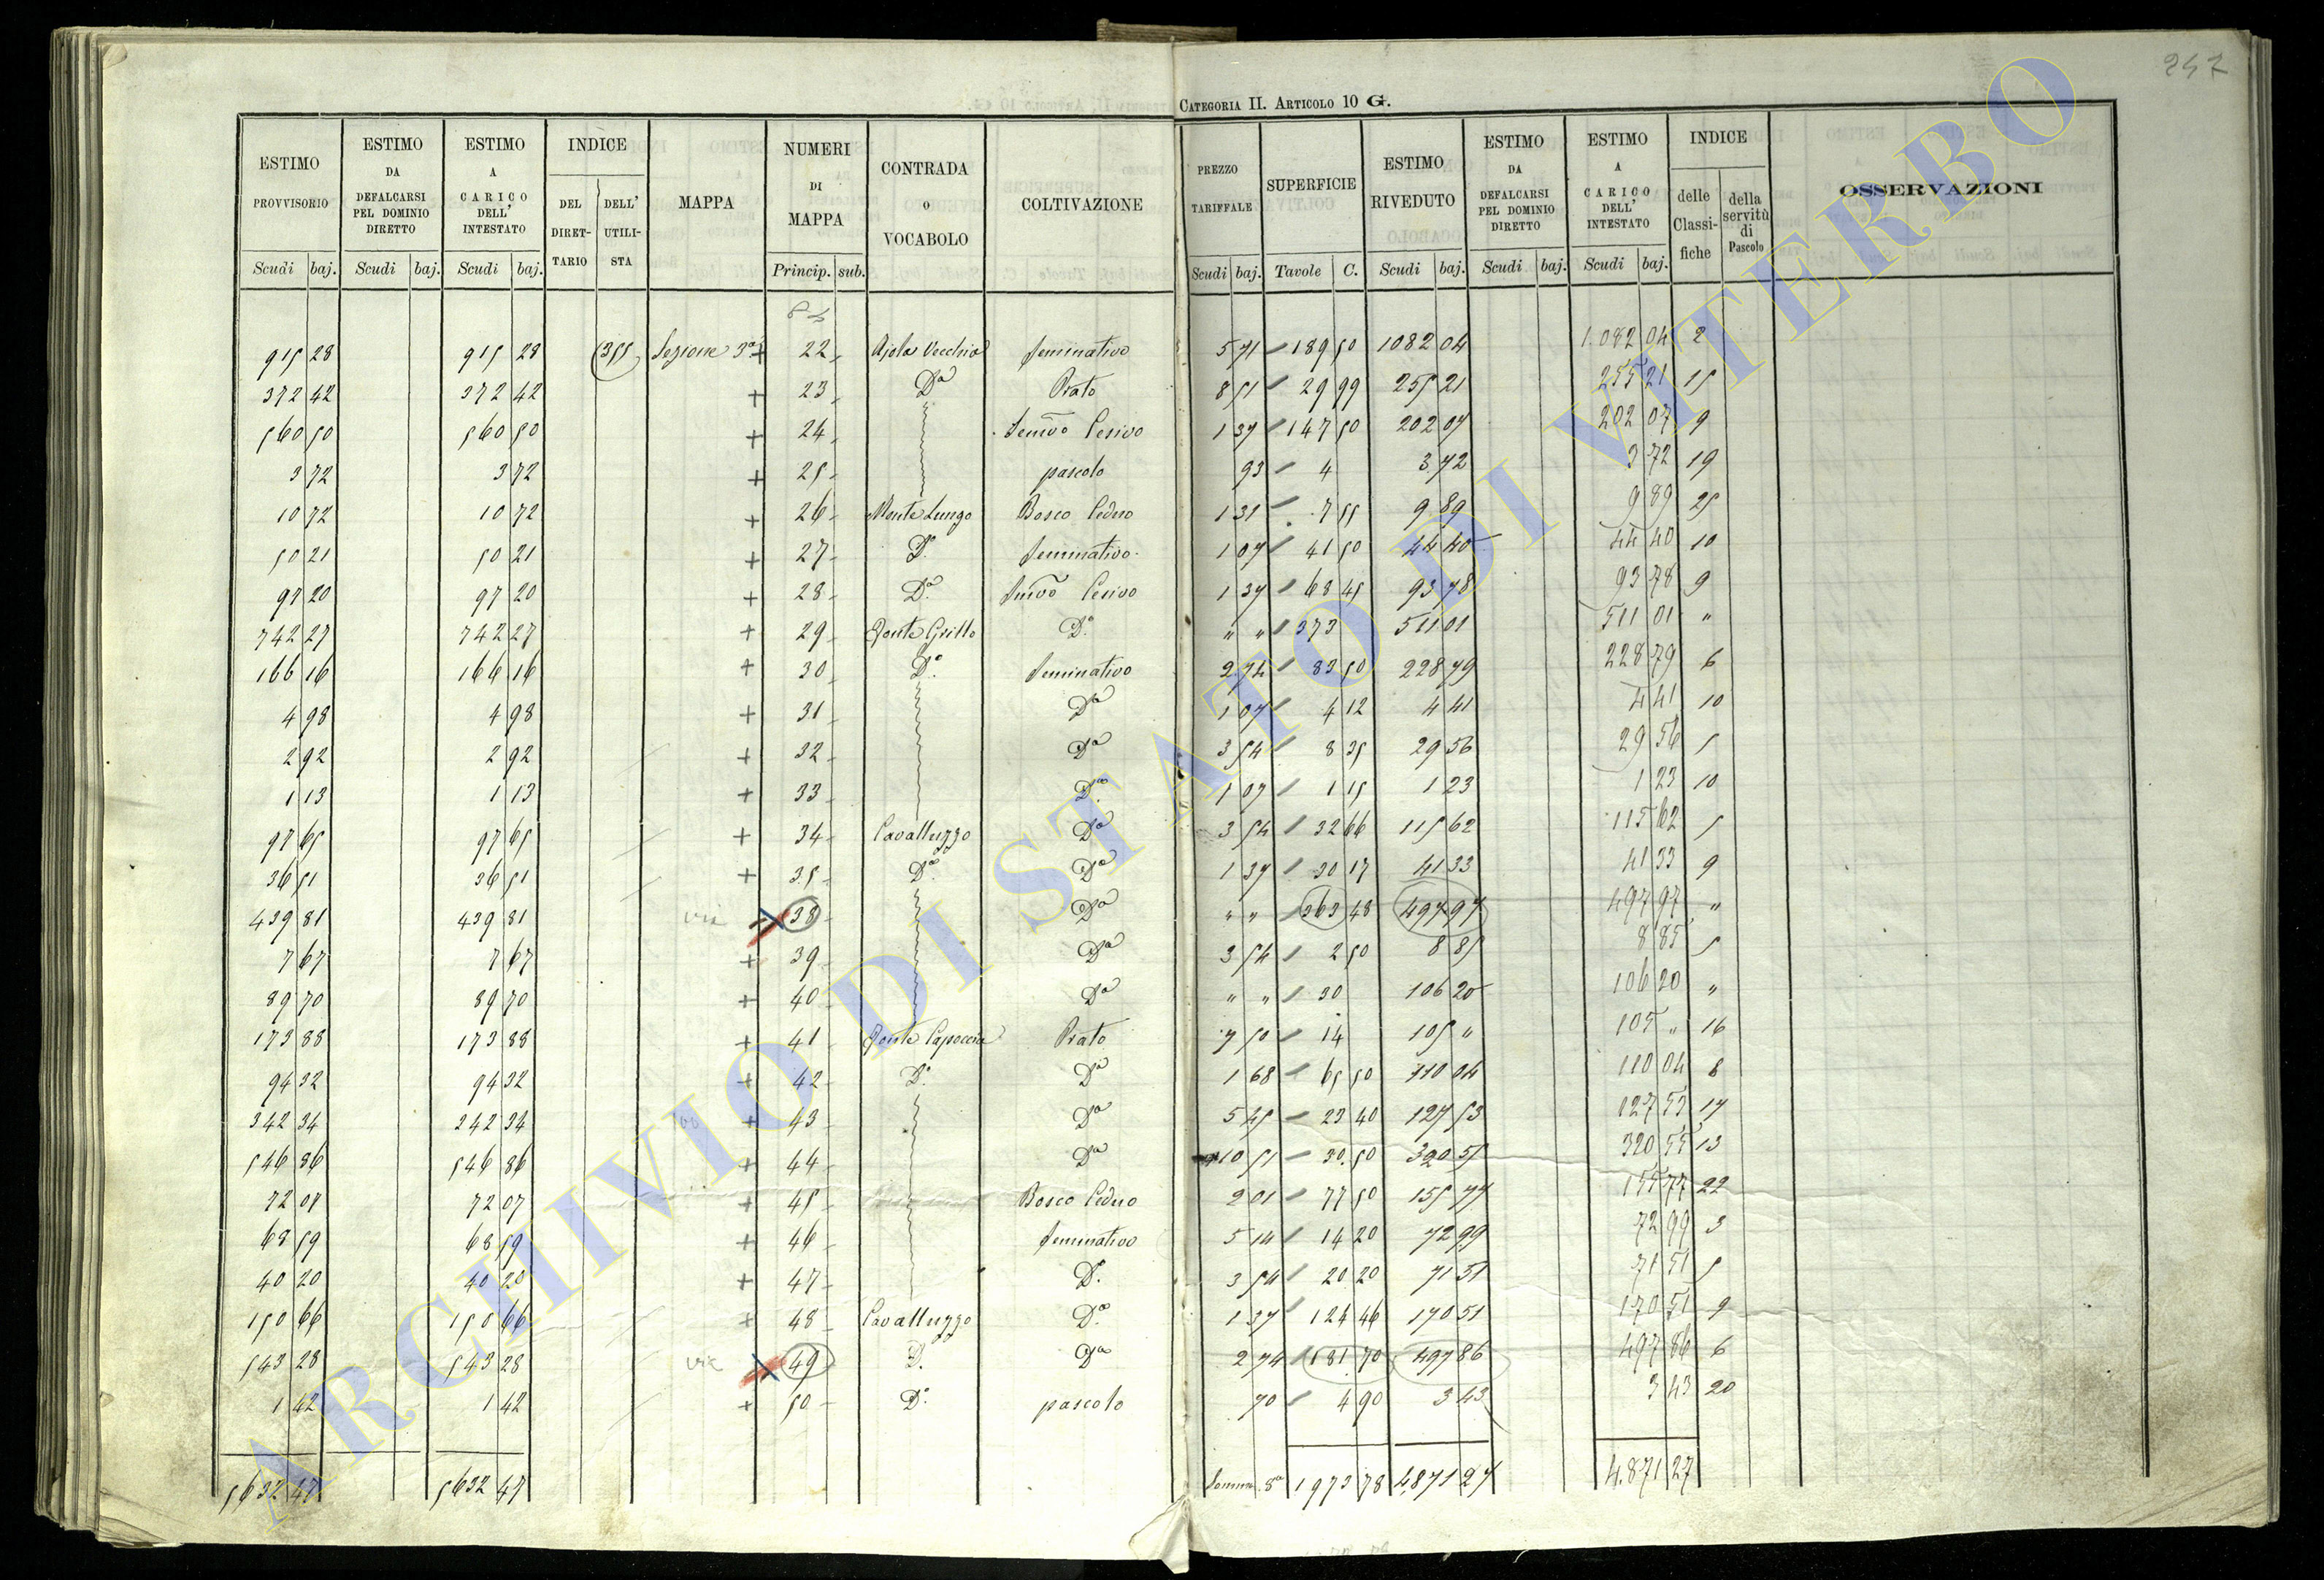 247
CATEGORIA II. ARTICOLO 10 G.
ESTIMO PROVVISORIO | ESTIMO DA DEFALCARSI PEL DOMINIO DIRETTO | ESTIMO A CARICO DELL' INTESTATO | INDICE | MAPPA | NUMERI DI MAPPA | CONTRADA O VOCABOLO | COLTIVAZIONE | PREZZO TARIFFALE | SUPERFICIE | ESTIMO RIVEDUTO | ESTIMO DA DEFALCARSI PEL DOMINIO DIRETTO | ESTIMO A CARICO DELL' INTESTATO | INDICE | OSSERVAZIONI
DEL DIRETTARIO | DELL' UTILISTA | delle Classifiche | della servitù di Pascolo
Scudi baj. | Scudi baj. | Scudi baj. | Princip. sub. | Scudi baj. | Tavole C. | Scudi baj. | Scudi baj. | Scudi baj.
915 28 | 915 28 | 355 | Sezione 3a + | 22 | Ajola Vecchia | Seminativo | 5 71 | 189 50 | 1082 04 | 1.082 04 | 2
372 42 | 372 42 | + | 23 | Da | Prato | 8 51 | 29 99 | 255 21 | 255 21 | 15
560 50 | 560 50 | + | 24 | Semvo Cesivo | 1 37 | 147 50 | 202 07 | 202 07 | 9
3 72 | 3 72 | + | 25 | pascolo | 93 | 4 | 3 72 | 3 72 | 19
10 72 | 10 72 | + | 26 | Monte Lungo | Bosco Ceduo | 1 31 | 7 55 | 9 89 | 9 89 | 25
50 21 | 50 21 | + | 27 | Do | Seminativo | 1 07 | 41 50 | 44 40 | 44 40 | 10
97 20 | 97 20 | + | 28 | Do | Semvo Cesivo | 1 37 | 68 45 | 93 78 | 93 78 | 9
742 27 | 742 27 | + | 29 | Fonte Grillo | Do | " " | 373 | 511 01 | 511 01 | "
166 16 | 166 16 | + | 30 | Do | Seminativo | 2 74 | 83 50 | 228 79 | 228 79 | 6
4 98 | 4 98 | + | 31 | Da | 1 07 | 4 12 | 4 41 | 4 41 | 10
2 92 | 2 92 | + | 32 | Da | 3 54 | 8 35 | 29 56 | 29 56 | 5
1 13 | 1 13 | + | 33 | Da | 1 07 | 1 15 | 1 23 | 1 23 | 10
97 65 | 97 65 | + | 34 | Cavalluzzo | Da | 3 54 | 32 66 | 115 62 | 115 62 | 5
36 51 | 36 51 | + | 35 | Do | Da | 1 37 | 30 17 | 41 33 | 41 33 | 9
439 81 | 439 81 | 38 | Da | " " | 363 48 | 497 97 | 497 97 | "
7 67 | 7 67 | + | 39 | Da | 3 54 | 2 50 | 8 85 | 8 85 | 5
89 70 | 89 70 | + | 40 | Da | " " | 30 | 106 20 | 106 20 | "
173 88 | 173 88 | + | 41 | Fonte Capoccia | Prato | 7 50 | 14 | 105 " | 105 " | 16
94 32 | 94 32 | + | 42 | Do | Da | 1 68 | 65 50 | 110 04 | 110 04 | 8
342 34 | 342 34 | + | 43 | Da | 5 45 | 23 40 | 127 53 | 127 53 | 17
546 86 | 546 86 | + | 44 | Da | 10 51 | 30 50 | 320 55 | 320 55 | 13
72 07 | 72 07 | + | 45 | Bosco Ceduo | 2 01 | 77 50 | 155 77 | 155 77 | 22
68 59 | 68 59 | + | 46 | Seminativo | 5 14 | 14 20 | 72 99 | 72 99 | 3
40 20 | 40 20 | + | 47 | Do | 3 54 | 20 20 | 71 51 | 71 51 | 5
150 66 | 150 66 | + | 48 | Cavalluzzo | Do | 1 37 | 124 46 | 170 51 | 170 51 | 9
543 28 | 543 28 | 49 | Do | Da | 2 74 | 181 70 | 497 86 | 497 86 | 6
1 42 | 1 42 | + | 50 | Do | pascolo | 70 | 4 90 | 3 43 | 3 43 | 20
5632 47 | 5632 47 | Somma | 1973 78 | 4,871 27 | 4.871 27
ARCHIVIO DI STATO DI VITERBO